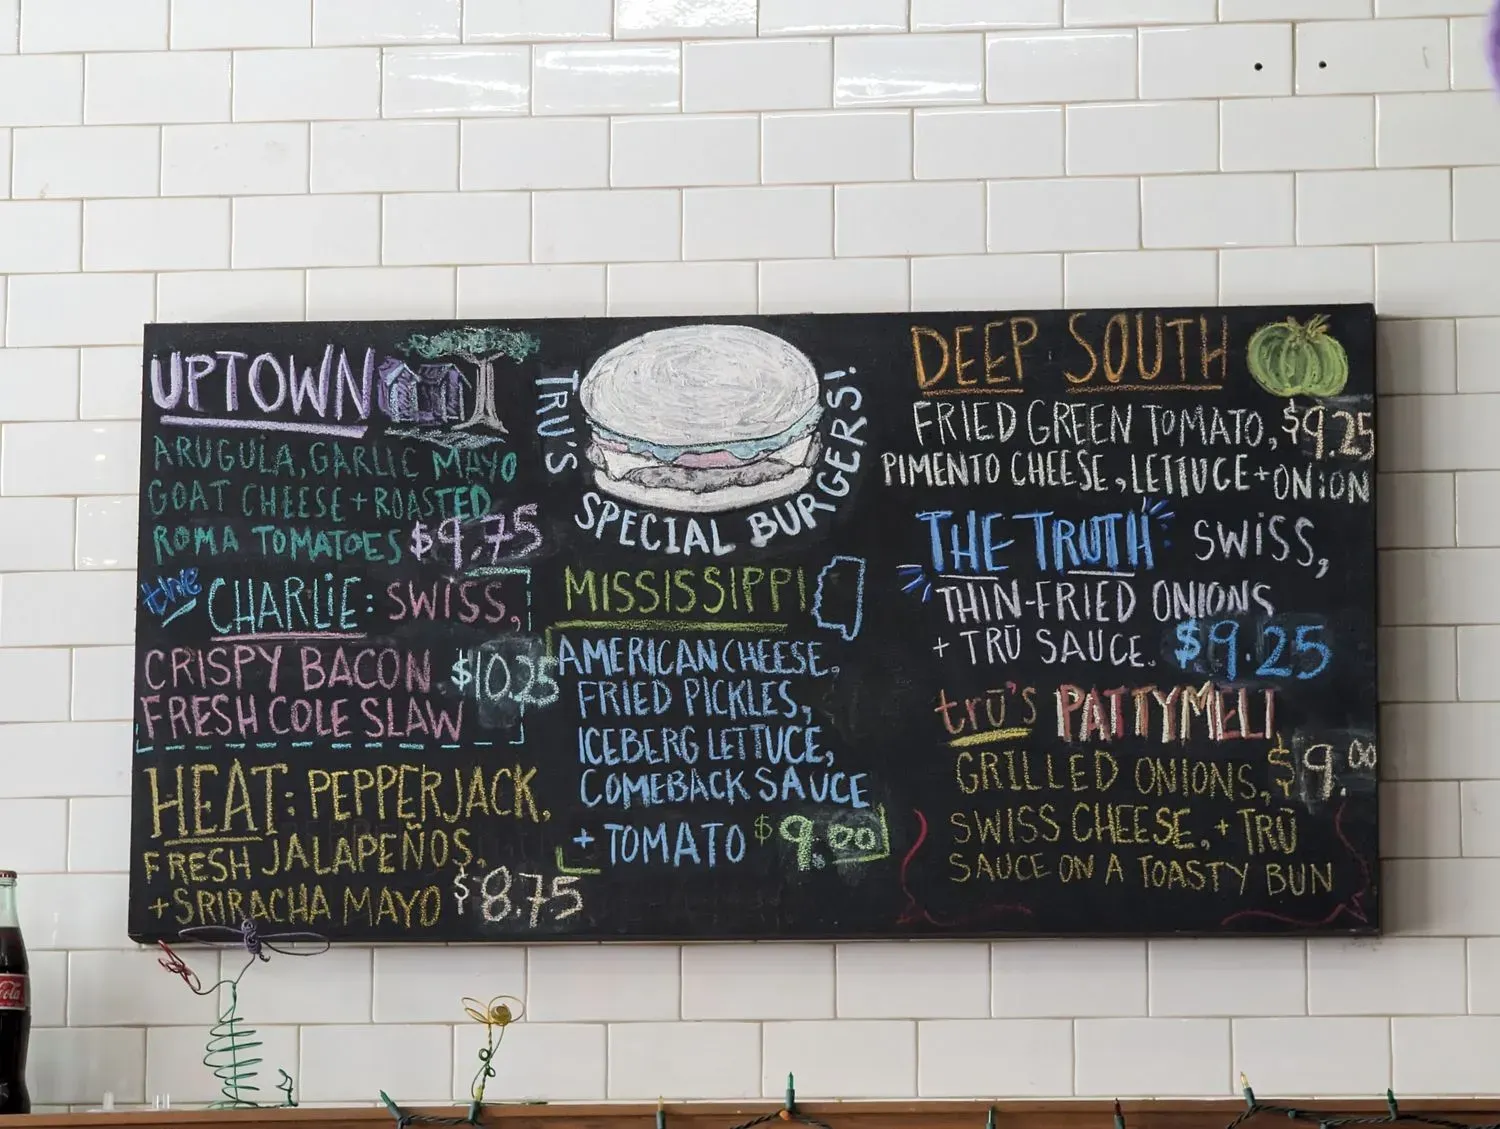 UPTOWN
ARUGULA, GARLIC MAYO
GOAT CHEESE + ROASTED
ROMA TOMATOES $9.75
the CHARLIE: SWISS,
CRISPY BACON $10.25
FRESH COLE SLAW
HEAT: PEPPERJACK,
FRESH JALAPEÑOS,
+ SRIRACHA MAYO $8.75
TRU'S
SPECIAL BURGERS!
MISSISSIPPI
AMERICAN CHEESE,
FRIED PICKLES,
ICEBERG LETTUCE,
COMEBACK SAUCE
+ TOMATO $9.00
DEEP SOUTH
FRIED GREEN TOMATO, $9.25
PIMENTO CHEESE, LETTUCE + ONION
THE TRUTH: SWISS,
THIN-FRIED ONIONS
+ TRŪ SAUCE. $9.25
trū's PATTYMELT
GRILLED ONIONS, $9.00
SWISS CHEESE, + TRŪ
SAUCE ON A TOASTY BUN